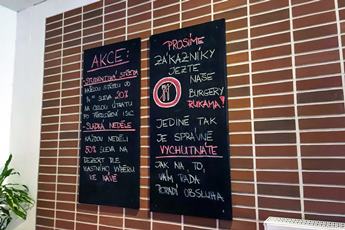 AKCE:
STUDENTSKÁ STŘEDA
KAŽDOU STŘEDU OD
20%
NA CELOU ÚTRATU
PO PŘEDLOŽENÍ ISIC
- SLADKÁ NEDĚLE
KAŽDOU NEDĚLI
50% SLEVA NA
DEZERT DLE
VLASTNÍHO VÝBĚRU
KE KÁVĚ
PROSÍME
ZÁKAZNÍKY
JEZTE
NAŠE
BURGERY
RUKAMA!
JEDINĚ TAK
JE SPRÁVNĚ
VYCHUTNÁTE
JAK NA TO,
VÁM RÁDA
PORADÍ OBSLUHA